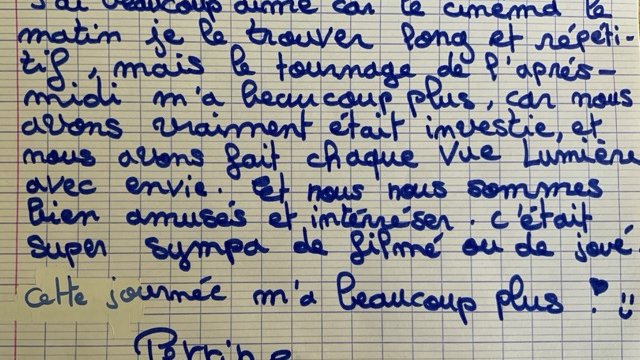 J'ai beaucoup aimé car le cinéma le
matin je le trouver long et répéti-
tif, mais le tournage de l'après-
midi m'a beaucoup plus, car nous
avons vraiment était investie, et
nous avons fait chaque Vue Lumière
avec envie. Et nous nous sommes
bien amusés et intérréser. C'était
super sympa de filmé ou de joué.
Cette journée m'a beaucoup plus !